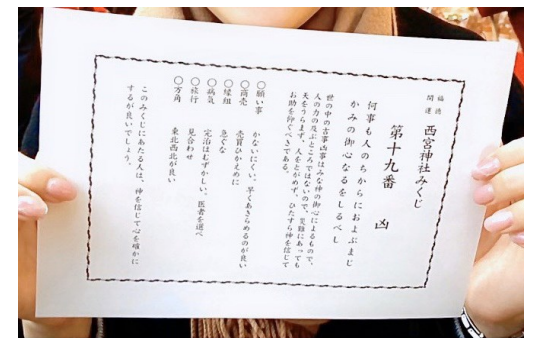 福徳開運 西宮神社みくじ
第十九番 凶
何事も人のちからにおよぶまじ
かみの御心なるをしるべし
世の中の古事凶事はみな神の御心によるもので、
人の力の及ぶところではないので、災難にあっても
天をうらまず、人をとがめず、ひたすら神を信じて
お助を仰ぐべきである。
○願い事 かないにくい。早くあきらめるのが良い
○商売 売買ひかえめに
○縁組 急ぐな
○病気 完治はむずかしい。医者を選べ
○旅行 見合わせ
○方角 東北西北が良い
このみくじにあたる人は、神を信じて心を確かに
するが良いでしょう。